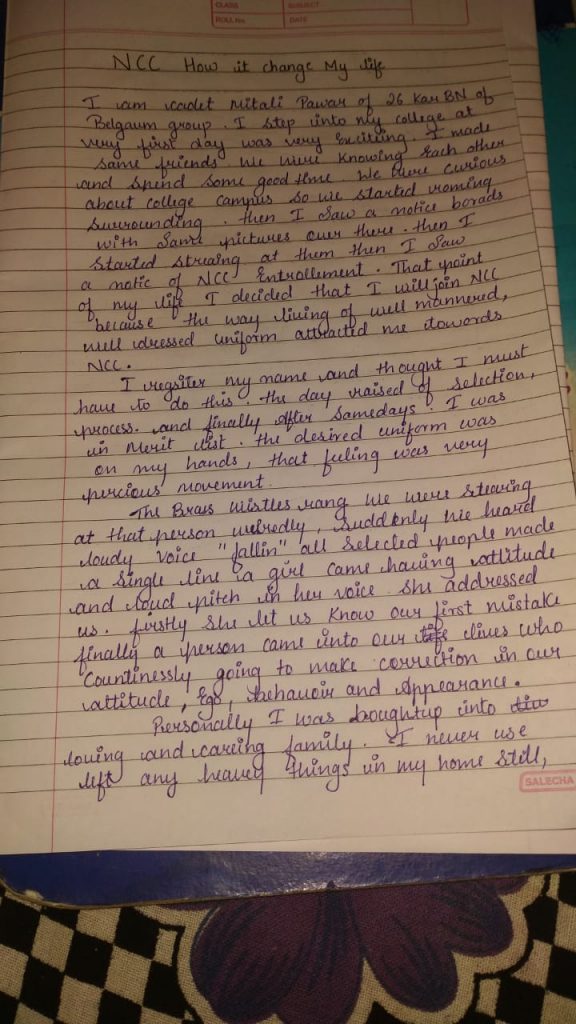 CLASS
SUBJECT
ROLL No.
DATE
NCC How it change My life
I am cadet Mitali Pawar of 26 Kar BN of
Belgaum group. I step into my college at
very first day was very Exciting. I made
same friends we were knowing Each other
and spend some good time. We were curious
about college campus so we started roming
surrounding. then I saw a notice borads
with same pictures over there. then I
started streaing at them then I saw
a notic of NCC Entrollement. That point
of my life I decided that I will join NCC
because the way living of well mannered,
well dressed uniform attracted me towords
NCC.
I regsiter my name and thought I must
have to do this. the day raised of selection,
process. and finally After samedays. I was
in Merit list. the desired uniform was
on my hands, that feling was very
percious movement.
The Brass wistles rang we were stearing
at that person wiredly, suddenly we heard
loudy voice "fallin" all selected people made
a single line a girl came having attitude
and loud pitch in her voice she addressed
us. firstly she let us know our first mistake
finally a person came into our life lives who
Countinessly going to make correction in our
attitude, Ego, behauoir and Appearance.
Personally I was boughtup into
loving and careing family. I never use
left any heavey things in my home still,
SALECHA